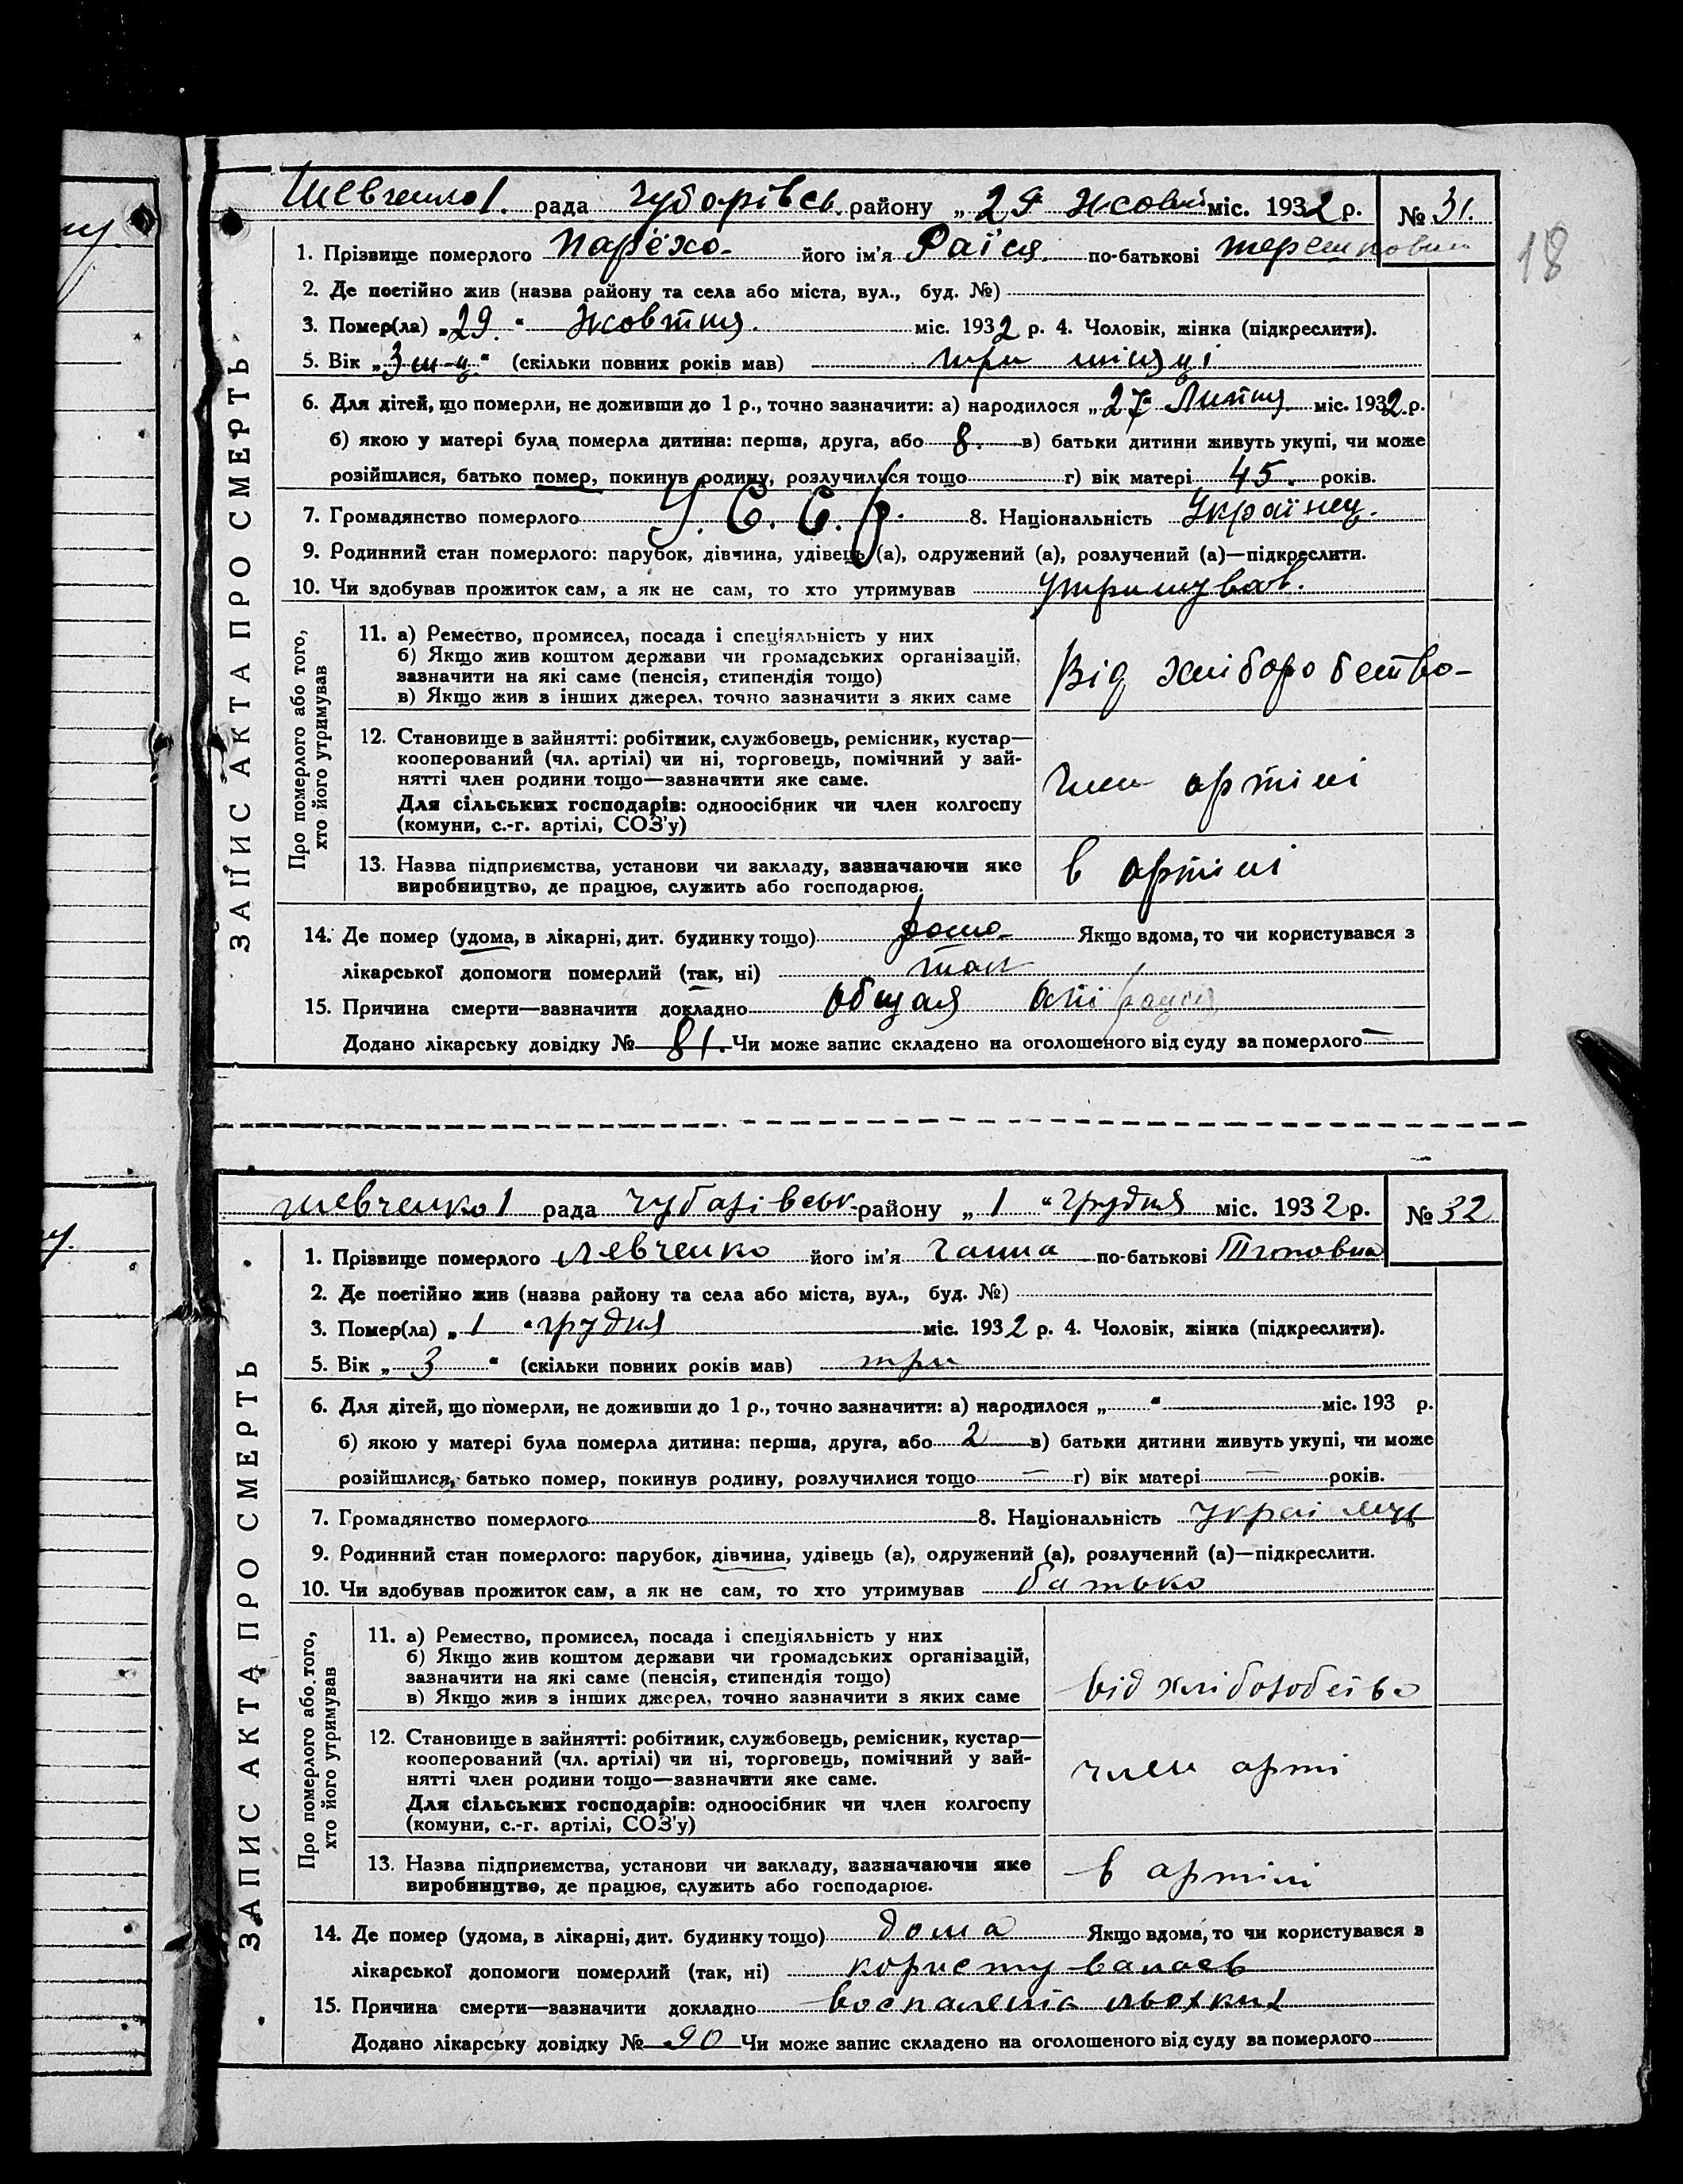 18
Шевченко 1. рада Чубарівськ. району „ 29 Жовтня міс. 1932 р. № 31.
1. Прізвище померлого його ім'я Раїся по-батькові
2. Де постійно жив (назва району та села або міста, вул., буд. №)
3. Помер(ла) „ 29. “ Жовтня. міс. 1932 р. 4. Чоловік, жінка (підкреслити).
5. Вік „ 3 м-ц “ (скільки повних років мав) три місяці
6. Для дітей, що померли, не доживши до 1 р., точно зазначити: а) народилося „ 27 “ Липня міс. 1932 р.
б) якою у матері була померла дитина: перша, друга, або 8. в) батьки дитини живуть укупі, чи може
розійшлися, батько помер, покинув родину, розлучилися тощо г) вік матері 45. років.
7. Громадянство померлого У. С. С. Р. 8. Національність Українец.
9. Родинний стан померлого: парубок, дівчина, удівець (а), одружений (а), розлучений (а)—підкреслити.
10. Чи здобував прожиток сам, а як не сам, то хто утримував утримував.
ЗАПИС АКТА ПРО СМЕРТЬ
Про померлого або того,
хто його утримував
11. а) Ремество, промисел, посада і спеціяльність у них
б) Якщо жив коштом держави чи громадських організацій,
зазначити на які саме (пенсія, стипендія тощо)
в) Якщо жив з інших джерел, точно зазначити з яких саме
Від хліборобство
12. Становище в зайнятті: робітник, службовець, ремісник, кустар—
кооперований (чл. артілі) чи ні, торговець, помічний у зай-
нятті член родини тощо—зазначити яке саме.
Для сільських господарів: одноосібник чи член колгоспу
(комуни, с.-г. артілі, СОЗ'у)
член артілі
13. Назва підприємства, установи чи закладу, зазначаючи яке
виробництво, де працює, служить або господарює.
в артілі
14. Де помер (удома, в лікарні, дит. будинку тощо) дома Якщо вдома, то чи користувався з
лікарської допомоги померлий (так, ні) так
15. Причина смерти—зазначити докладно общая
Додано лікарську довідку № 81. Чи може запис складено на оголошеного від суду за померлого —
Шевченко 1 рада Чубарівськ. району „ 1 “ грудня міс. 1932 р. № 32
1. Прізвище померлого Левченко його ім'я Ганна по-батькові
2. Де постійно жив (назва району та села або міста, вул., буд. №)
3. Помер(ла) „ 1 “ грудня міс. 1932 р. 4. Чоловік, жінка (підкреслити).
5. Вік „ 3 “ (скільки повних років мав) три
6. Для дітей, що померли, не доживши до 1 р., точно зазначити: а) народилося „ “ міс. 193 р.
б) якою у матері була померла дитина: перша, друга, або 2 в) батьки дитини живуть укупі, чи може
розійшлися, батько помер, покинув родину, розлучилися тощо — г) вік матері — років.
7. Громадянство померлого 8. Національність
9. Родинний стан померлого: парубок, дівчина, удівець (а), одружений (а), розлучений (а)—підкреслити.
10. Чи здобував прожиток сам, а як не сам, то хто утримував батько
ЗАПИС АКТА ПРО СМЕРТЬ
Про померлого або того,
хто його утримував
11. а) Ремество, промисел, посада і спеціяльність у них
б) Якщо жив коштом держави чи громадських організацій,
зазначити на які саме (пенсія, стипендія тощо)
в) Якщо жив з інших джерел, точно зазначити з яких саме
від
12. Становище в зайнятті: робітник, службовець, ремісник, кустар—
кооперований (чл. артілі) чи ні, торговець, помічний у зай-
нятті член родини тощо—зазначити яке саме.
Для сільських господарів: одноосібник чи член колгоспу
(комуни, с.-г. артілі, СОЗ'у)
член арті
13. Назва підприємства, установи чи закладу, зазначаючи яке
виробництво, де працює, служить або господарює.
в артілі
14. Де помер (удома, в лікарні, дит. будинку тощо) дома Якщо вдома, то чи користувався з
лікарської допомоги померлий (так, ні) користувалась
15. Причина смерти—зазначити докладно воспаленія льохких
Додано лікарську довідку № 90 Чи може запис складено на оголошеного від суду за померлого